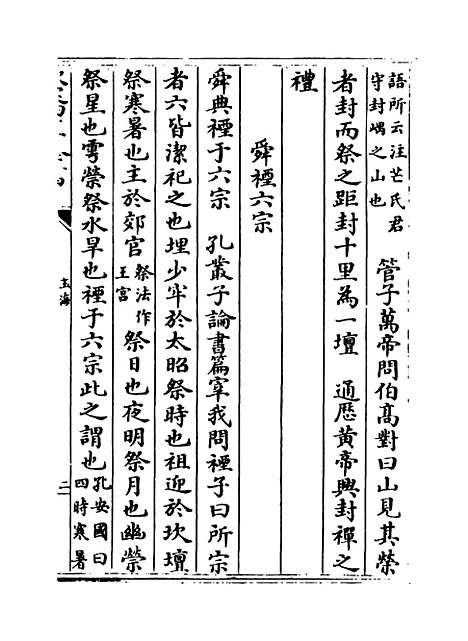 語所云注芒氏君
守封嵎之山也
管子萬帝問伯髙對曰山見其榮
者封而祭之距封十里為一壇　通歴黄帝興封禪之
禮
舜禋六宗
舜典禋于六宗　孔叢子論書篇宰我問禋子曰所宗
者六皆潔祀之也埋少牢於太昭祭時也祖迎於坎壇
祭寒暑也主於郊官
祭法作
王宫
祭日也夜明祭月也幽禜
祭星也雩禜祭水旱也禋于六宗此之謂也
孔安國曰
四時寒暑
玉海
二